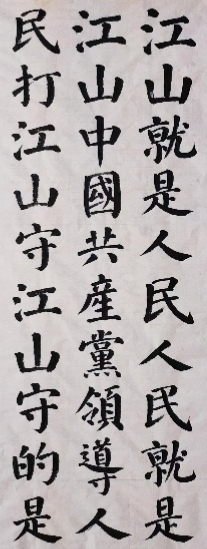 江山就是人民人民就是
江山中國共産黨領導人
民打江山守江山守的是